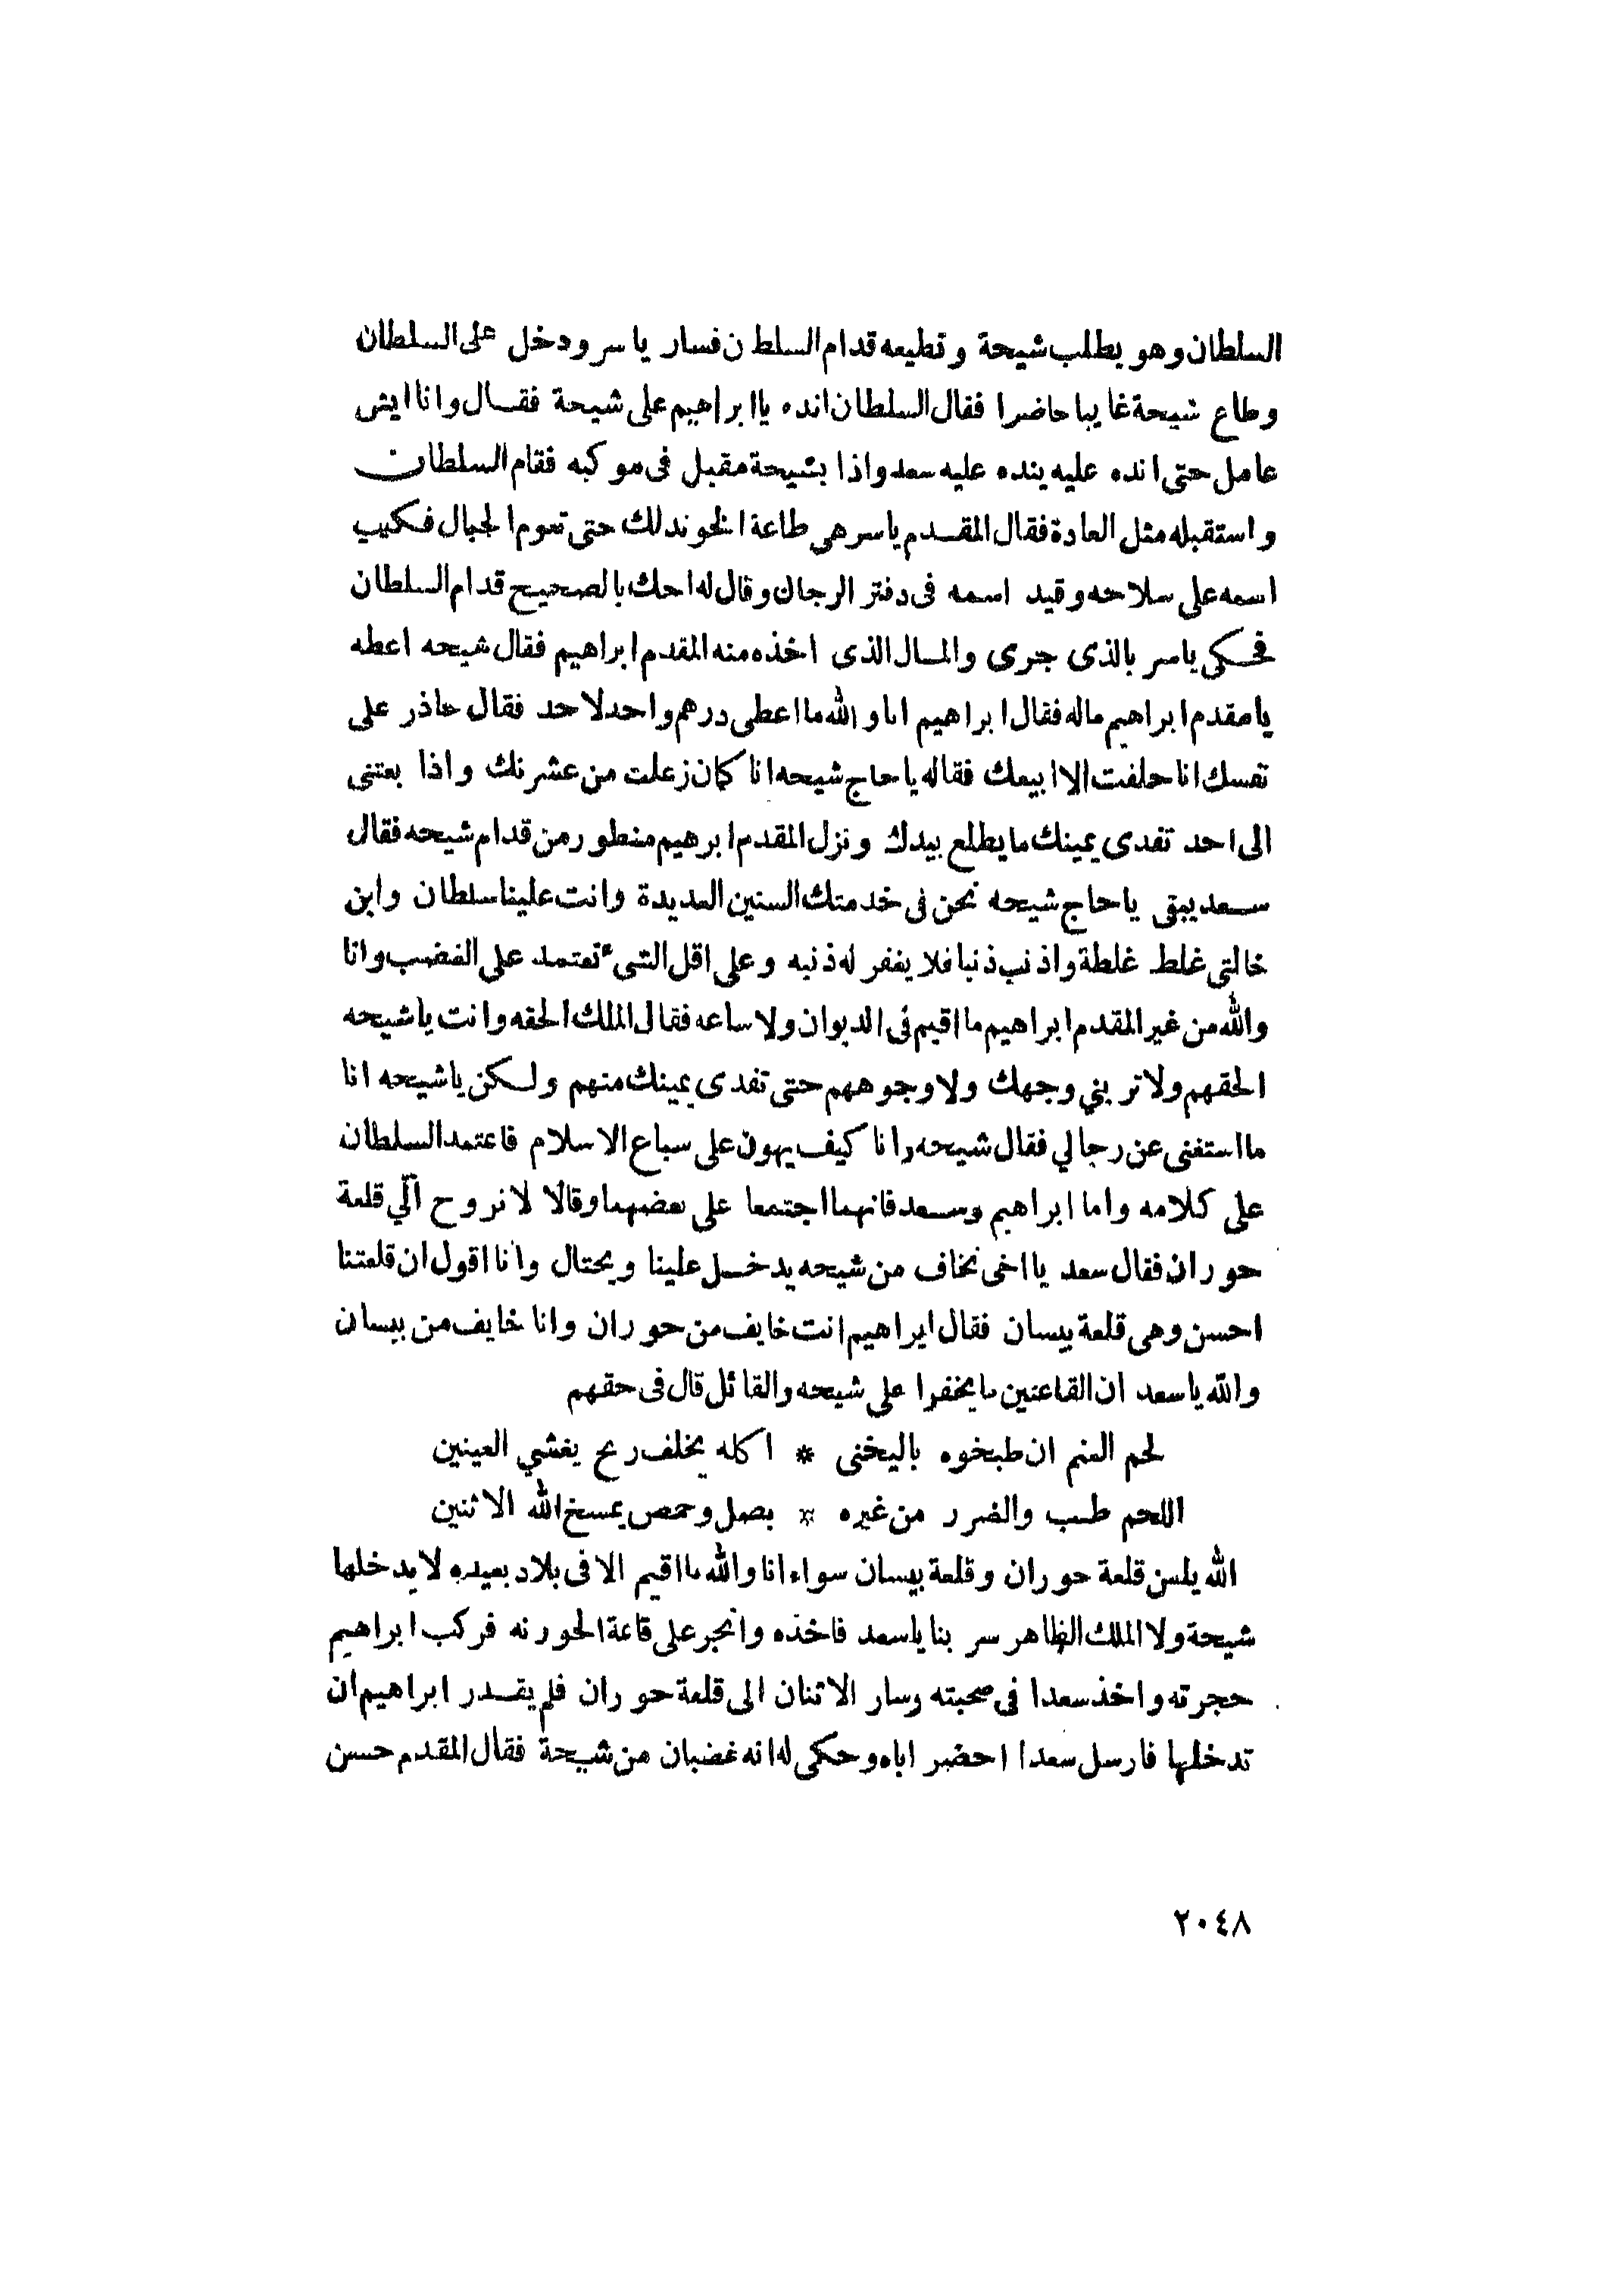 السلطان وهو يطلب شيحة وتطيعه قدام السلط ن فسار ياسر ودخل على السلطان
وطاع شيحة غايبا حاضرا فقال السلطان انده يا ابراهيم على شيحة فقال وانا ايش
عامل حتى انده عليه ينده عليه سعد واذا بشيحة مقبل فى موكبه فقام السلطان
واستقبله مثل العادة فقال المقدم ياسر هى طاعة الخوند لك حتى تعوم الجبال فكيب
اسمه على سلاحه وقيد اسمه فى دفتر الرجال وقال له احك بالصحيح قدام السلطان
فحكى ياسر بالذى جرى والمال الذى اخذه منه المقدم ابراهيم فقال شيحه اعطه
يا مقدم ابراهيم ماله فقال ابراهيم انا والله ما اعطى درهم واحد لاحد فقال حاذر على
نفسك انا حلفت الا ابيعك فقاله يا حاج شيحه انا كمان زعلت من عشرنك واذا بعتنى
الى احد تفدى يمينك ما يطلع بيدك ونزل المقدم ابرهيم منطور من قدام شيحه فقال
سعد يبقى يا حاج شيحه نحن فى خدمتك السنين العديدة وانت علينا سلطان وابن
خالتى غلط غلطة واذنب ذنبا فلا يغفر له ذنبه وعلى اقل الشىء تعتمد على الغضب وانا
والله من غير المقدم ابراهيم ما اقيم فى الديوان ولا ساعه فقال الملك الحقه وانت يا شيحه
الحقهم ولا تربني وجهك ولا وجوههم حتى تفدى يمينك منهم ولكن يا شيحه انا
ما استغنى عن رجالي فقال شيحه وانا كيف يهون على سباع الاسلام فاعتمد السلطان
على كلامه واما ابراهيم وسعد فانهما اجتمعا على بعضهما وقالا لا نروح الي قلعة
حوران فقال سعد يا اخى نخاف من شيحه يدخل علينا ويحتال وانا اقول ان قلعتنا
احسن وهى قلعة بيسان فقال ابراهيم انت خايف من حوران وانا خايف من بيسان
والله يا سعد ان القاعتين ما يخفرا على شيحه والقائل قال فى حقهم
لحم الغنم ان طبخوه باليخنى * اكله يخلف ريح يغشي العينين
اللحم طيب والضرر من غيره * بصل وحمص يمسخ الله الاثنين
الله يلعن قلعة حوران وقلعة بيسان سواء انا والله ما اقيم الا فى بلاد بعيده لا يدخلها
شيحة ولا الملك الظاهر سر بنا يا سعد فاخذه وانجر على قاعة الحورنه فركب ابراهيم
حجرته واخذ سعدا فى صحبته وسار الاثنان الى قلعة حوران فلم يقدر ابراهيم ان
تدخلها فارسل سعدا احضر اباه وحكى له انه غضبان من شيحة فقال المقدم حسن
٢٠٤٨